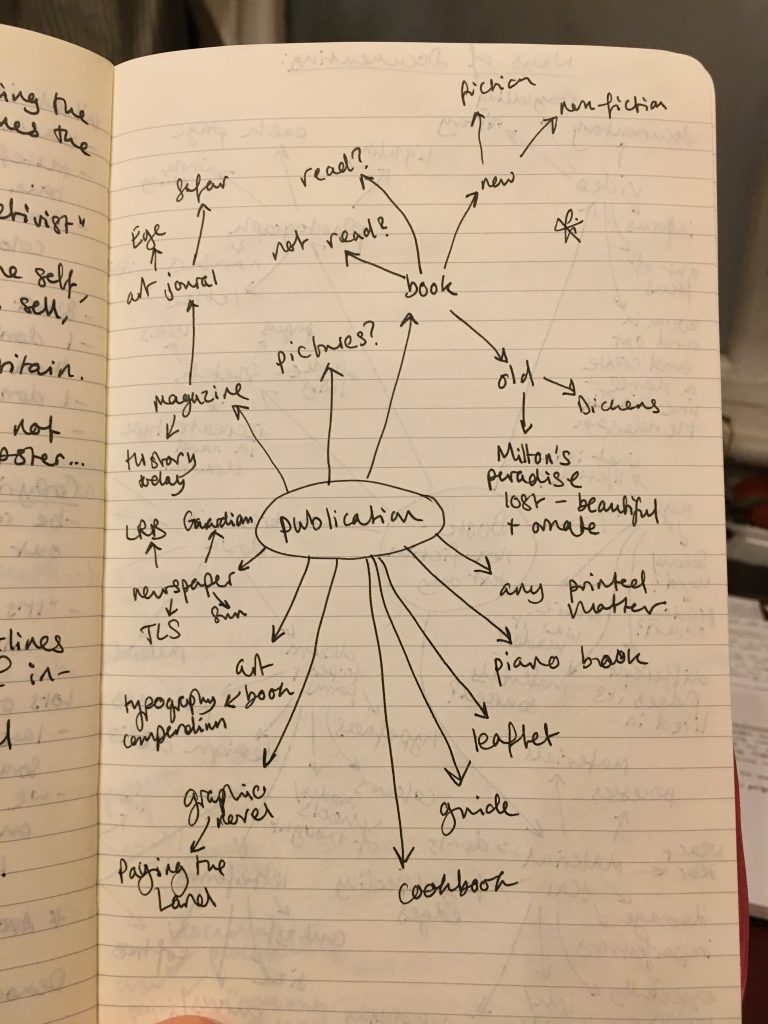 ing the
nes the
etivist"
he self,
sell,
ritain.
not
oster...
tlines
in-
fiction
non-fiction
new
read?
not read?
book
safar
Ege
art jounal
pictures?
magazine
History
today
old
Dickens
Milton's
paradise
lost – beautiful
+ ornate
publication
LRB
Guardian
newspaper
TLS
Sun
any printed
matter
piano book
art
book
typography
compendium
leaflet
guide
graphic
novel
Paying the
Land
cookbook